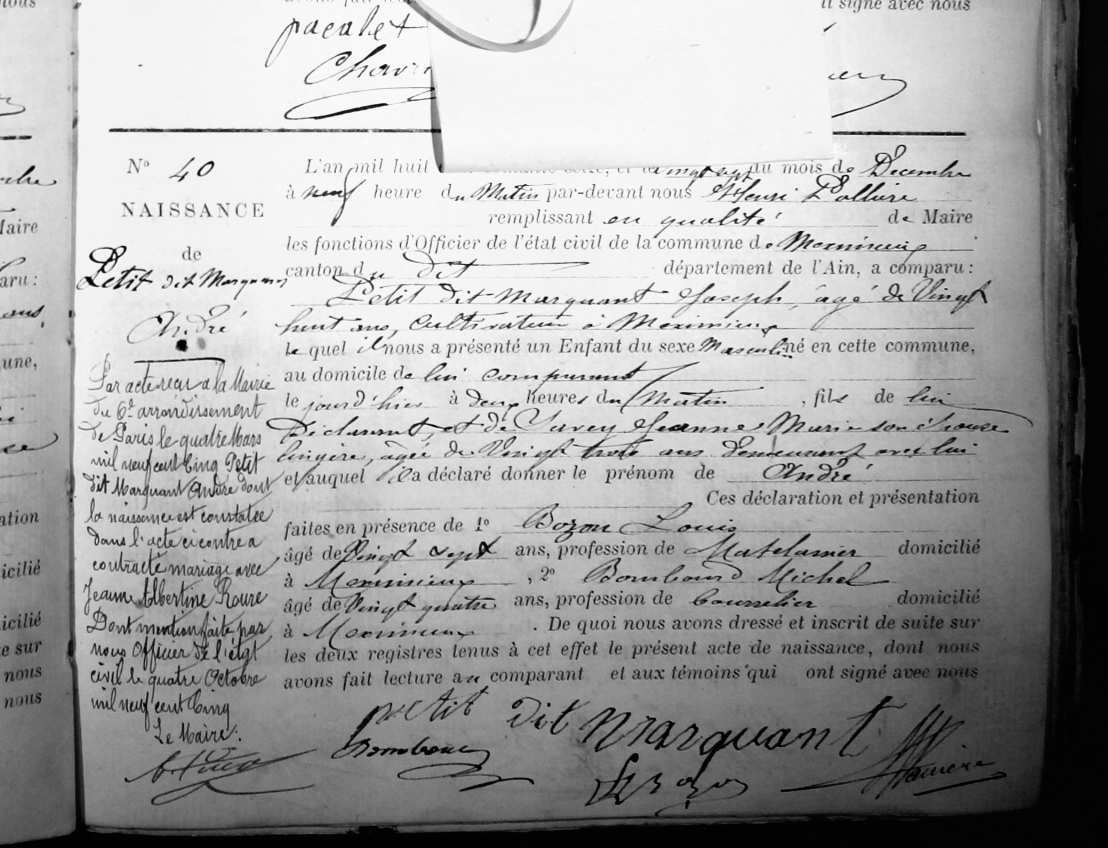 ont signé avec nous
pacalet
N° 40
NAISSANCE
de
Petit dit Marquant
André
Par acte reçu à la Mairie
du 6e arrondissement
de Paris le quatre Mars
mil neuf cent Cinq Petit
dit Marquant André dont
la naissance est constatée
dans l'acte ci contre a
contracté mariage avec
Jeanne Albertine Roure
Dont mention faite par
nous Officier de l'état
civil le quatre Octobre
mil neuf cent Cinq
Le Maire:
L'an mil huit et le vingt sept du mois de Décembre
à neuf heure du Matin par-devant nous Henri
remplissant en qualité de Maire
les fonctions d'Officier de l'état civil de la commune de Meximieux
canton du dit département de l'Ain, a comparu:
Petit dit Marquant Joseph, âgé de Vingt
huit ans, Cultivateur à Meximieux
le quel il nous a présenté un Enfant du sexe Masculin né en cette commune,
au domicile de lui comparant
le jourd'hier à deux heures du Matin, fils de lui
Déclarant, et de Jeanne Marie son épouse
lingère, agée de Vingt trois ans demeurant avec lui
et auquel il a déclaré donner le prénom de André
Ces déclaration et présentation
faites en présence de 1° Bozon Louis
âgé de Vingt sept ans, profession de Matelassier domicilié
à Meximieux, 2° Bombourd Michel
âgé de Vingt quatre ans, profession de bourrelier domicilié
à Meximieux. De quoi nous avons dressé et inscrit de suite sur
les deux registres tenus à cet effet le présent acte de naissance, dont nous
avons fait lecture au comparant et aux témoins qui ont signé avec nous
petit dit Marquant